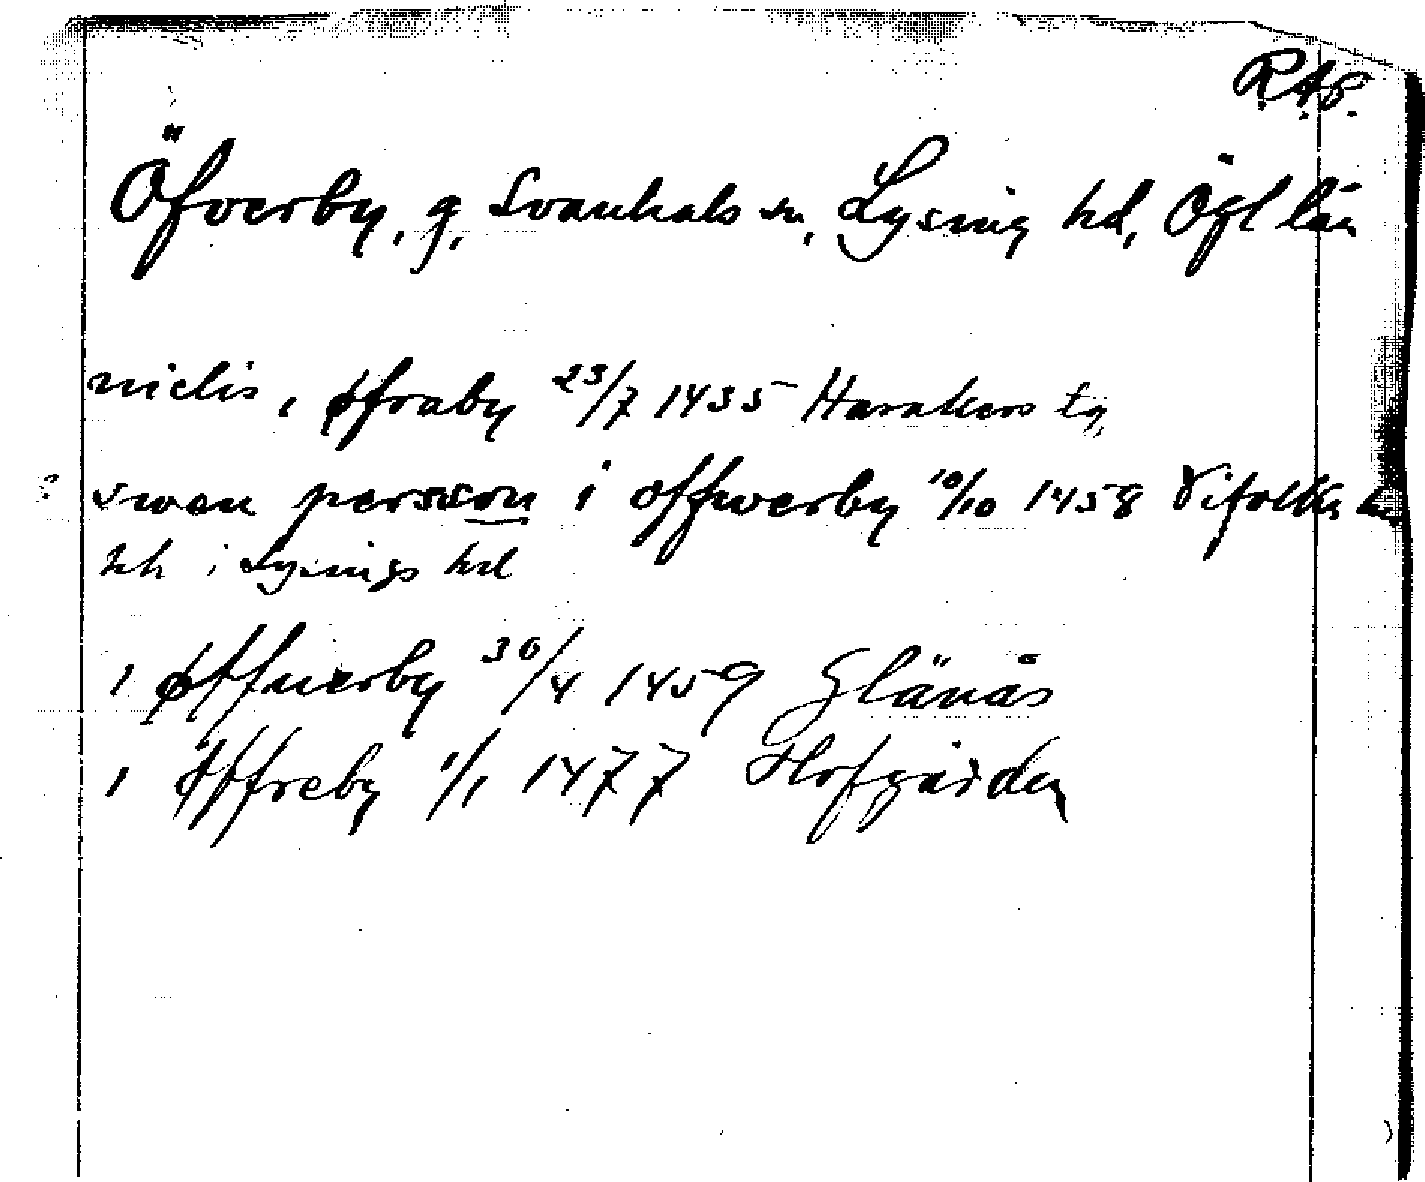 R.A.P.
Öfverby, g, Svanhals sn, Lysing hd, Ögl län
niclis i øfraby 23/7 1435 Harakers tg
? swen persson i offwerby 10/10 1458 Vifolka
hh i Lysings hd
i øffuerby 30/4 1459 Glänås
i Öffreby 1/1 1477 Hofgården